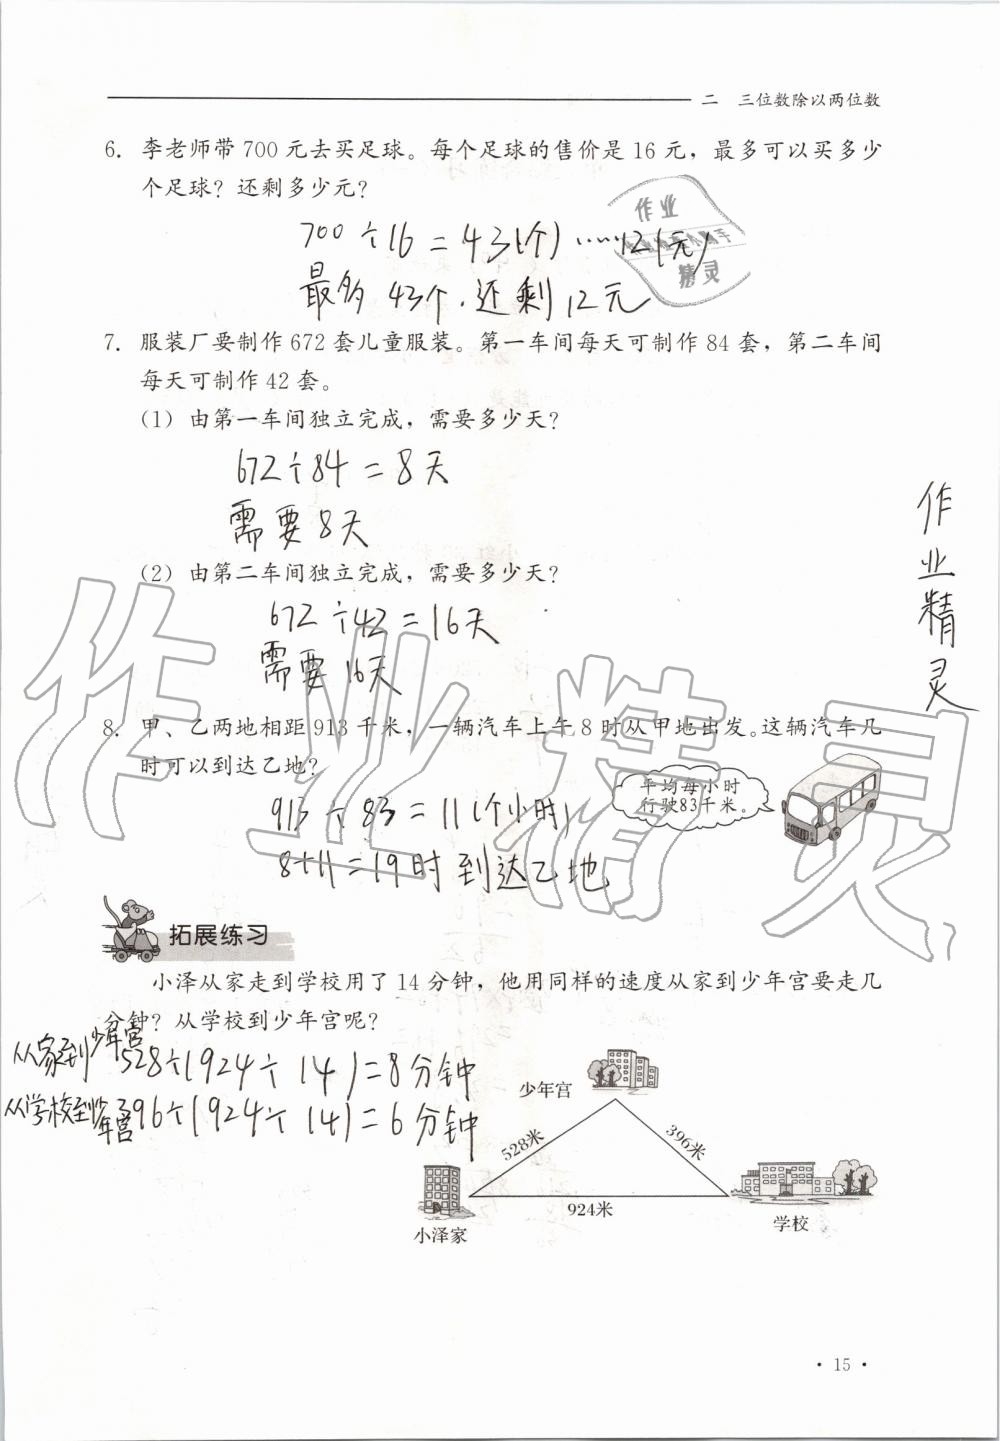 二 三位数除以两位数
6. 李老师带 700 元去买足球。每个足球的售价是 16 元，最多可以买多少
个足球？还剩多少元？
作业
精灵
700÷16=43(个)……12(元)
最多 43个.还剩12元
7. 服装厂要制作 672 套儿童服装。第一车间每天可制作 84 套，第二车间
每天可制作 42 套。
(1) 由第一车间独立完成，需要多少天？
672÷84=8天
需要8天
(2) 由第二车间独立完成，需要多少天？
672÷42=16天
需要16天
作业精灵
作业精灵
8. 甲、乙两地相距 913 千米，一辆汽车上午 8 时从甲地出发。这辆汽车几
时可以到达乙地？
平均每小时
行驶83千米。
913÷83=11(个小时)
8+11=19时到达乙地
拓展练习
小泽从家走到学校用了 14 分钟，他用同样的速度从家到少年宫要走几
分钟？从学校到少年宫呢？
从家到少年宫
528÷(924÷14)=8分钟
从学校到少年宫
396÷(924÷14)=6分钟
少年宫
528米
396米
924米
小泽家
学校
· 15 ·